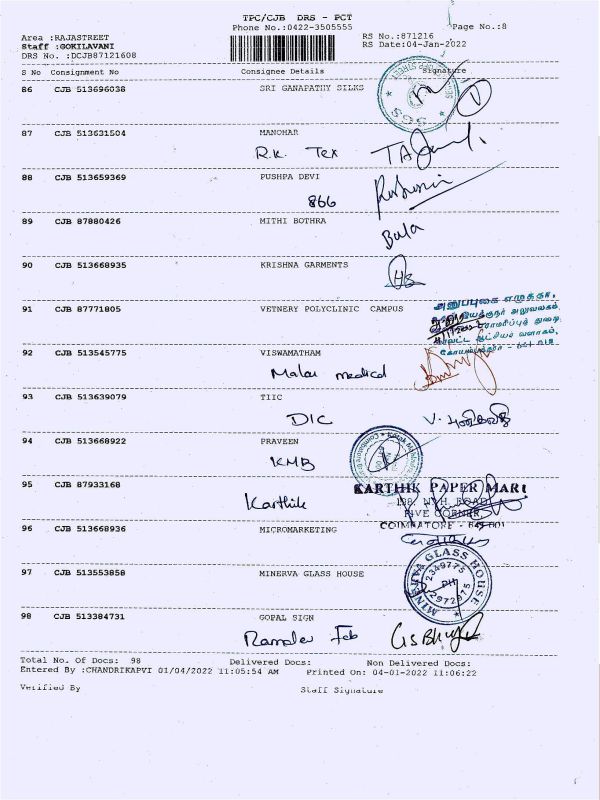 TPC/CJB DRS - PCT
Phone No.:0422-3505555
Page No.:8
Area :RAJASTREET
RS No.:871216
Staff :GOKILAVANI
RS Date:04-Jan-2022
DRS No. :DCJB87121608
S No Consignment No Consignee Details Signature
86 CJB 513696038 SRI GANAPATHY SILKS
SGS
87 CJB 513631504 MANOHAR
R.K. Tex
88 CJB 513659369 PUSHPA DEVI
866
89 CJB 87880426 MITHI BOTHRA
Bala
90 CJB 513668935 KRISHNA GARMENTS
91 CJB 87771805 VETNERY POLYCLINIC CAMPUS
92 CJB 513545775 VISWAMATHAM
medical
93 CJB 513639079 TIIC
DIC
94 CJB 513668922 PRAVEEN
KMB
95 CJB 87933168
KARTHIK PAPER MART
Karthik
FIVE CORNER
COIMBATORE - 641 001
96 CJB 513668936 MICROMARKETING
97 CJB 513553858 MINERVA GLASS HOUSE
MINERVA GLASS HOUSE
2349775
PH
2972975
98 CJB 513384731 GOPAL SIGN
Total No. Of Docs: 98 Delivered Docs: Non Delivered Docs:
Entered By :CHANDRIKAPVI 01/04/2022 11:05:54 AM Printed On: 04-01-2022 11:06:22
Verified By Staff Signature